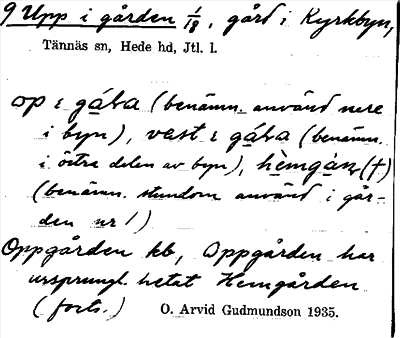 9 Upp i gården 1/18, gård i Kyrkbyn,
Tännäs sn, Hede hd, Jtl. l.
op i gáɫa (benämn. använd nere
i byn), vast i gáɫa (benämn.
i östra delen av byn), hèmgàn (†)
(benämn. stundom använd i går-
den nr 1)
Oppgården kb, Oppgården har
ursprungl. hetat Hemgården
(forts.) O. Arvid Gudmundson 1935.